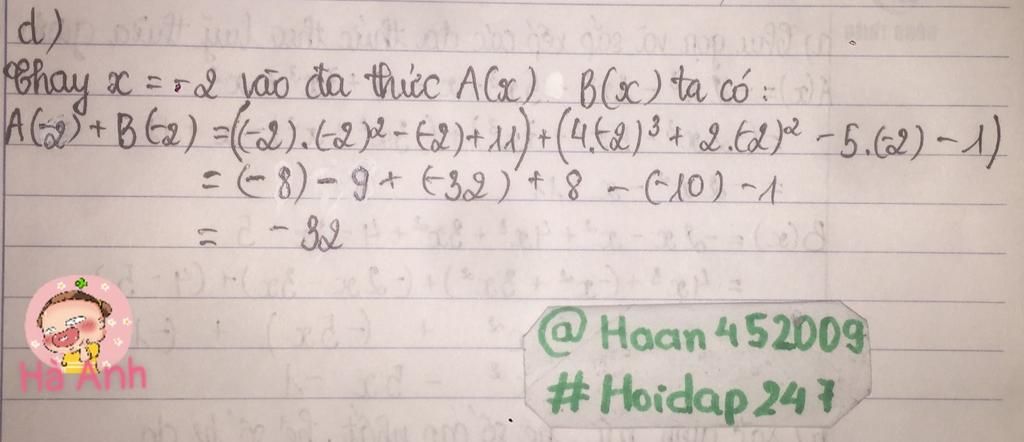 d)
Thay x = -2 vào đa thức A(x) B(x) ta có:
A(-2) + B(-2) = ((-2).(-2)² - (-2) + 11) + (4.(-2)³ + 2.(-2)² - 5.(-2) - 1)
= (-8) - 9 + (-32) + 8 - (-10) - 1
= -32
Hà Anh
@Haan452009
#Hoidap247